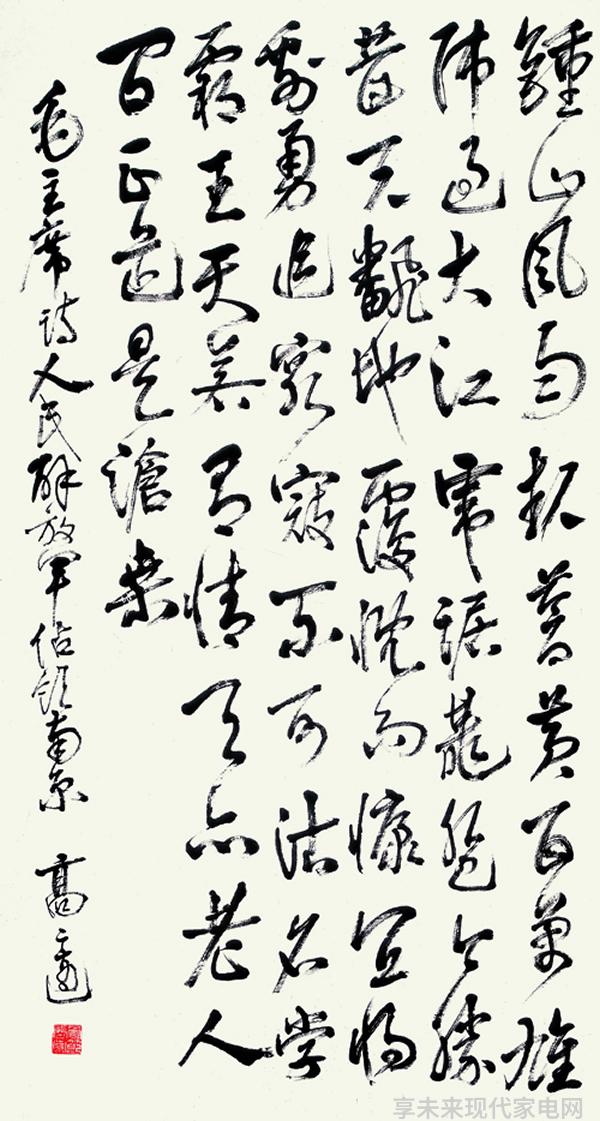 鍾山風雨起蒼黃百萬雄
師過大江虎踞龍盤今勝
昔天飜地覆慨而慷宜將
剩勇追窮寇不可沽名學
霸王天若有情天亦老人
間正道是滄桑
毛主席詩人民解放軍佔領南京 高
享未来现代家电网